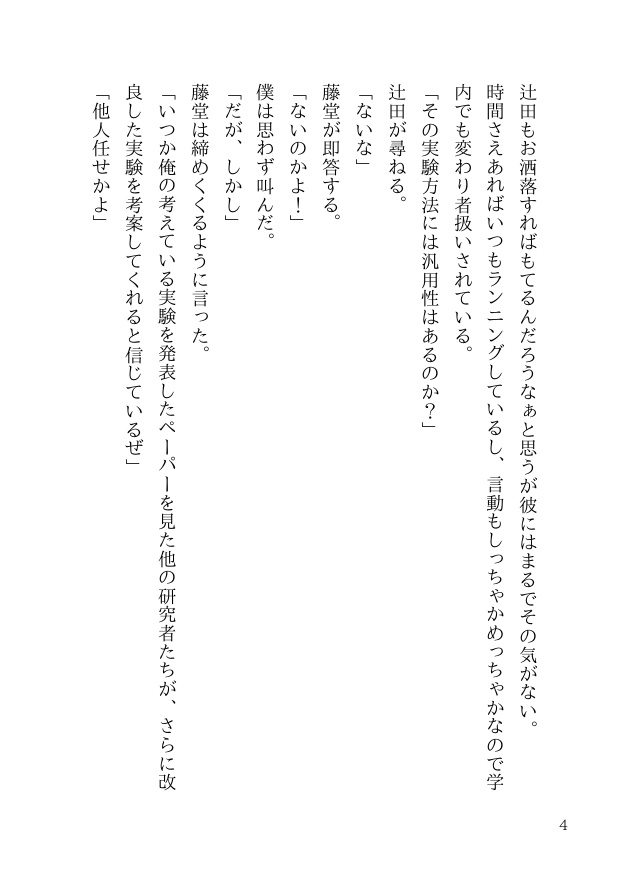 辻田もお洒落すればもてるんだろうなぁと思うが彼にはまるでその気がない。
時間さえあればいつもランニングしているし、言動もしっちゃかめっちゃかなので学
内でも変わり者扱いされている。
「その実験方法には汎用性はあるのか？」
辻田が尋ねる。
「ないな」
藤堂が即答する。
「ないのかよ！」
僕は思わず叫んだ。
「だが、しかし」
藤堂は締めくくるように言った。
「いつか俺の考えている実験を発表したペーパーを見た他の研究者たちが、さらに改
良した実験を考案してくれると信じているぜ」
「他人任せかよ」
4